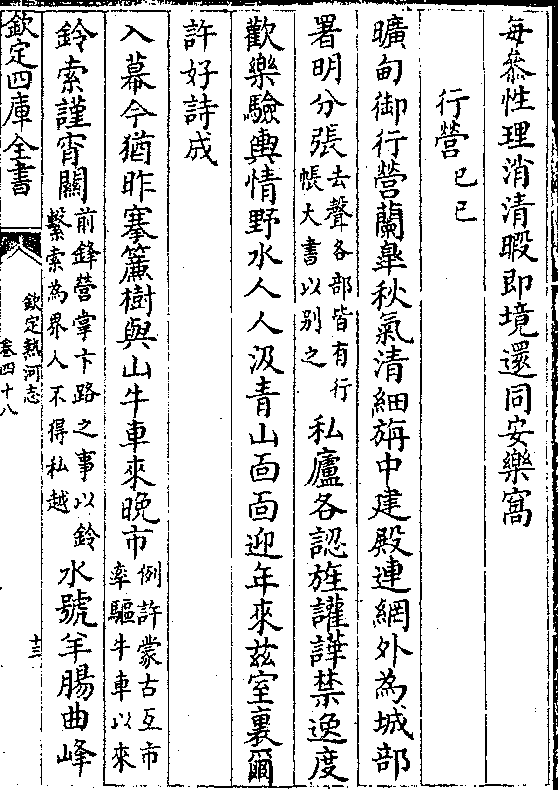 每叅性理消清暇即境還同安樂窩
行營己巳
曠甸御行營蘭臯秋氣清細旃中建殿連網外為城部
署明分張去聲各部皆有行帳大書以别之私廬各認旌讙譁禁逸度
歡樂驗輿情野水人人汲青山面面迎年來兹室裏爾
許好詩成
入幕今猶昨搴簾樹與山牛車來晚市例許蒙古互市率驅牛車以來
鈴索謹宵關前鋒營掌卞路之事以鈴繫索為界人不得私越水號羊腸曲峰
欽定四庫全書
欽定熱河志
卷四十八
十三